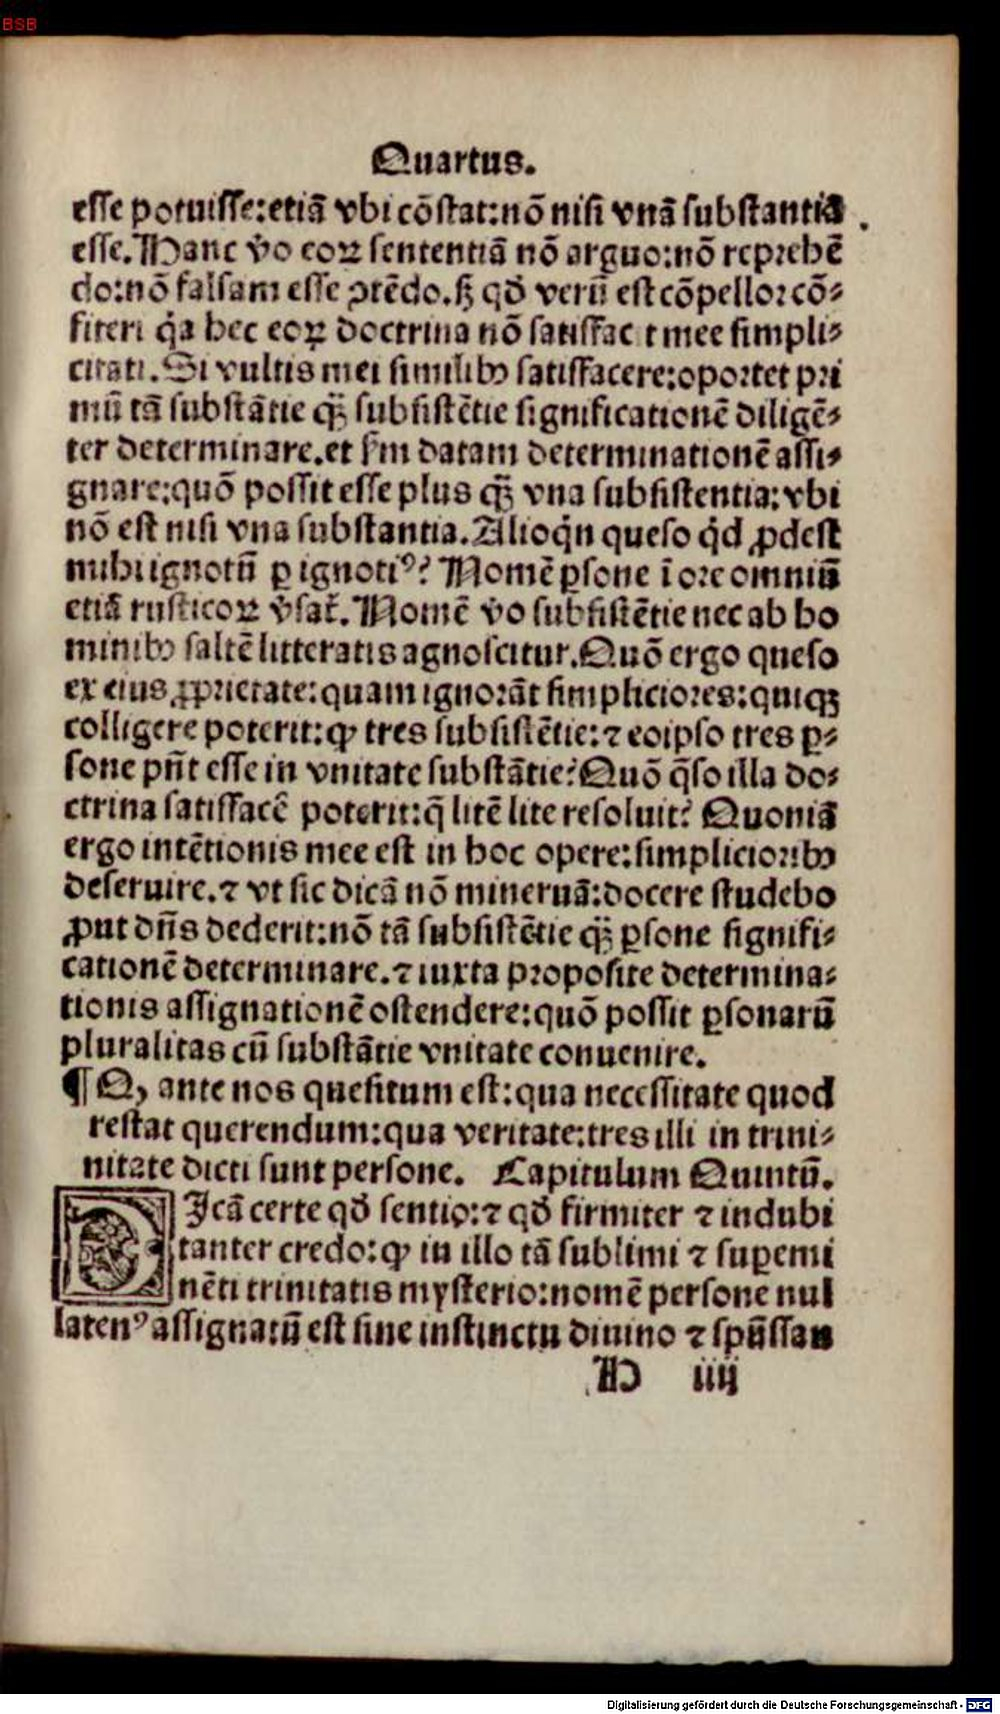 BSB
Quartus.
esse potuisse:etiā vbi cōstat:nō nisi vnā substantiā
esse. Hanc v̄o eoꝝ sententiā nō arguo:nō reprehē
do:nō falsam esse ↄtēdo.sꝫ qd̄ verū est cōpellor cō⸗
fiteri q̇a hec eoꝝ doctrina nō satisfac t mee simpli⸗
citati. Si vultis mei similibꝰ satisfacere:oportet pri
mū tā substātie qꝫ̄ subsistētie significationē diligē⸗
ter determinare.et ẜm datam determinationē assi⸗
gnare:quō possit esse plus qꝫ̄ vna subsistentia:vbi
nō est nisi vna substantia. Alioq̇n queso q̇d ꝓdest
mihi ignotū ꝑ ignotiꝰ? Nomē ꝑsone ī ore omniū
etiā rusticoꝝ v̄sat̄. Nomē v̄o subsistētie nec ab ho
minibꝰ saltē litteratis agnoscitur. Quō ergo queso
ex eius ꝓprietate:quam ignorāt simpliciores:quisqꝫ
colligere poterit:ꝙ tres subsistētie:⁊ eoipso tres ꝑ⸗
sone pn̄t esse in vnitate substātie? Quō q̄so illa do⸗
ctrina satisfacē poterit:q̄ litē lite resoluit? Quoniā
ergo intētionis mee est in hoc opere:simplicioribꝰ
deseruire.⁊ vt sic dicā nō mineruā:docere studebo
ꝓut dn̄s dederit:nō tā subsistētie qꝫ̄ ꝑsone signifi⸗
cationē determinare.⁊ iuxta proposite determina⸗
tionis assignationē ostendere:quō possit ꝑsonarū
pluralitas cū substātie vnitate conuenire.
¶ Q, ante nos quesitum est:qua necessitate quod
restat querendum:qua veritate:tres illi in trini⸗
nitate dicti sunt persone. Capitulum Quintū.
DIcā certe qd̄ sentio:⁊ qd̄ firmiter ⁊ indubi
tanter credo:ꝙ in illo tā sublimi ⁊ suꝑemi
nēti trinitatis mysterio:nomē persone nul
latenꝰ assignatū est sine instinctu diuino ⁊ spūssan
H iiij
Digitalisierung gefördert durch die Deutsche Forschungsgemeinschaft - DFG